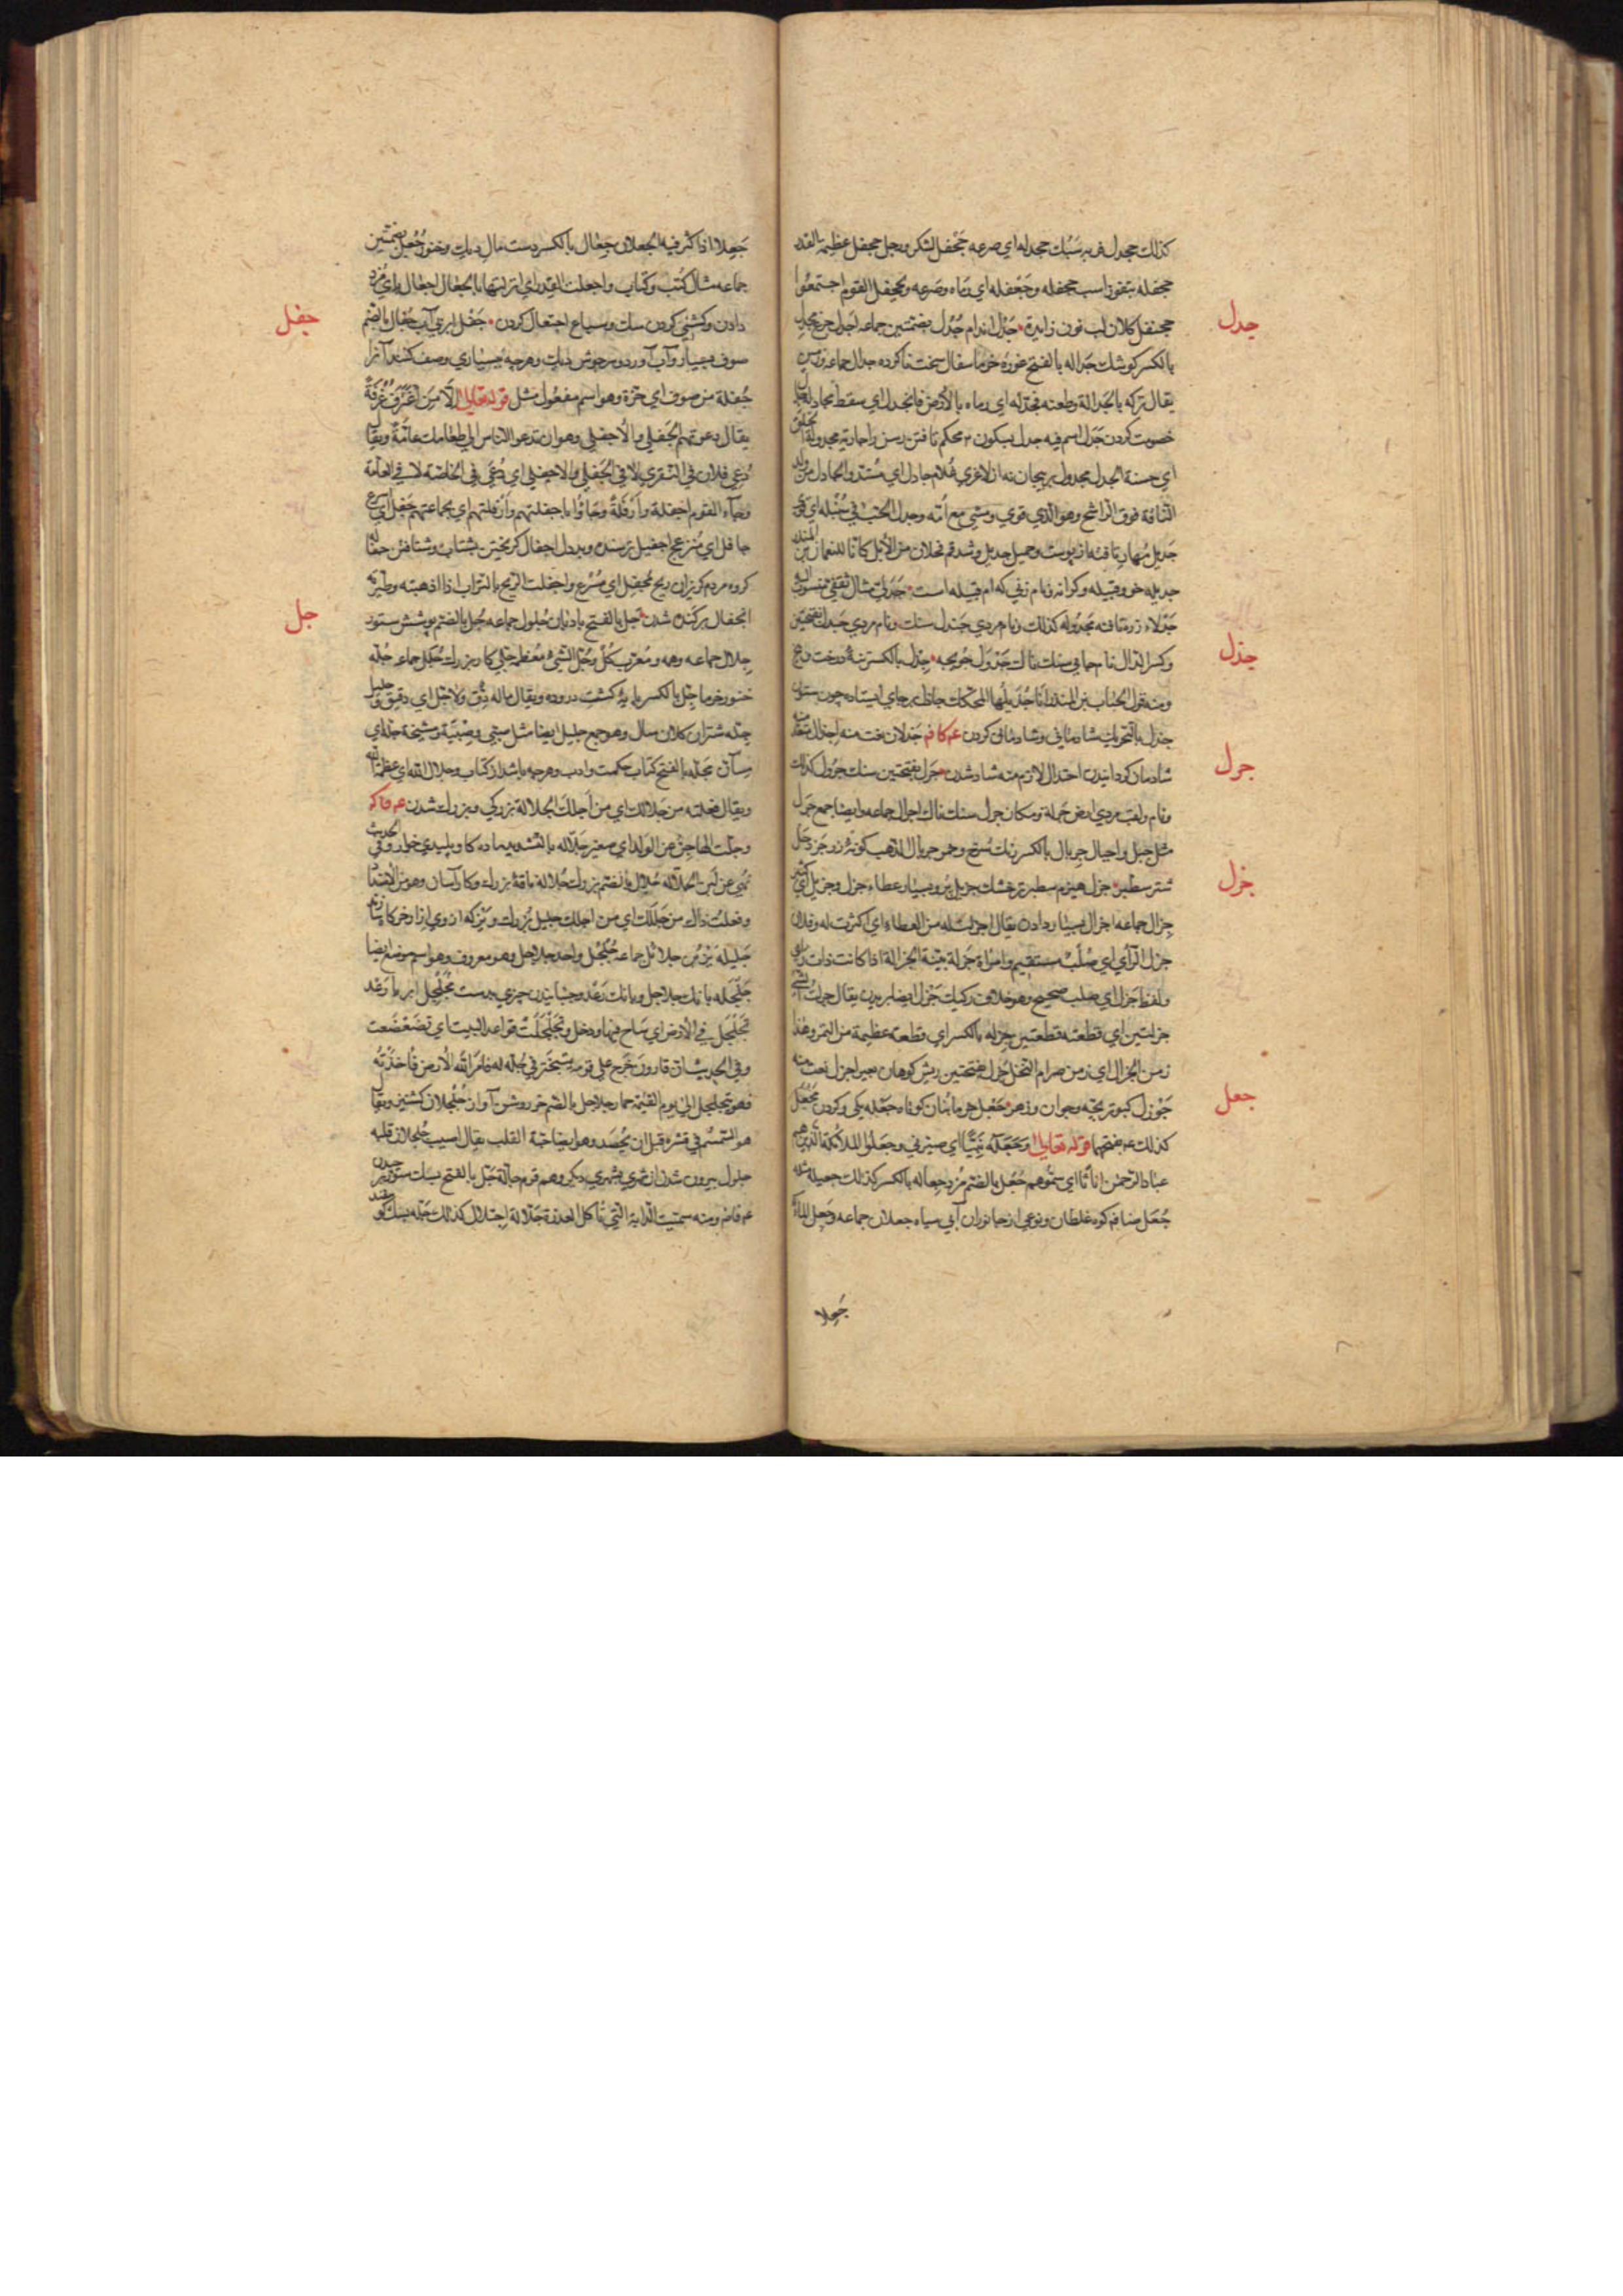 كذلك جحدل فربه سبك جحدله اي صرعه جحفل لشكر ورجل جحفل عظيم القدر
جحفله بتفوز اسب جحفله وجعفله اي رماه وصرعه وتجحفل القوم اجتمعوا
جحنفل كلان لب نون زايدة جدل اندام جدول بضمتين جماعه اجدل چرغ مجدل
جدل
بالكسر كوشك جداله بالفتح غوره خرما سفال سخت ناكرده جدال جماعه وزمين
يقال تركه بالجدالة وطعنه فجدله اي رماه بالأرض فانجدل اي سقط مجادله جدال
خصومت كردن جدل اسم فيه جدل بسكون م محكم تافتن رسن وجارية مجدولة الخلق
اي حسنة الجدل مجدول پريجان نه از لاغري غلام جادل اي مشتد والجادل من ولد
الناقة فوق الراشح وهو الذي قوي ومشي مع امه وجدل الحب في سنبله اي قوي
جديل مهار تافته از پوست وجديل وشدقم فحلان من الابل كانا للنعمان بن المنذر
جديله خو وقبيله وكرانه ونام زني كه ام قبيله است جدلي مثال ثقفي منسوب اليه
جدلاء زره تافته مجدوله كذلك ونام مردي جندل سنك ونام مردي جندل بفتحتين
وكسر الدال نام جاي سنك ناك جدول جويچه جذل بالكسر تنه درخت وبيخ
جذل
ومنه قول الحباب بن المنذر انا جذيلها المحكك جاذل برجاي ايستاده چون ستون
جذل بالتحريك شادماني وشادماني كردن ع م كا فم جذلان نعت منه اجذال متعد منه
شادمان كردانيدن اجتذال لازم منه شاد شدن جرل بفتحتين سنك جرول كذلك
جرل
ونام ولقب مردي ارض جرلة ومكان جرل سنك ناك اجرال جماعه وايضا جمع جرل
مثل جبل واجبال جريال بالكسر رنك سرخ وخمر جريال الذهب كونه زر جردحل
شتر سطبر جزل هيزم سطبر خشك جزيل پر وبسيار عطاء جزل وجزيل اي كثير
جزل
جزال جماعه اجزال بسيار دادن يقال اجزلت له من العطاء اي اكثرت له وفلان
جزل الرأي اي صلب مستقيم وامراة جزلة بينة الجزالة اذا كانت ذات راي
ولفظ جزل اي صلب صحيح وهو خلاف ركيك جزل ايضا بريدن يقال جزلت الشي
جزلتين اي قطعته قطعتين جزله بالكسر اي قطعة عظيمة من التمر وهذا
زمن الجزال اي زمن صرام النخل جزل بفتحتين ريش كوهان بعير اجزل نعت منه
جوزل كبوتر بچه وجوان وزهر جعل خرمابنان كوتاه جعله يكي وكردن تجعيل
جعل
كذلك ع م ضتهما قوله تعالي وجعله نبيا اي صيرني وجعلوا الملائكة الذين هم
عباد الرحمن اناثا اي سموهم جعل بالضم مزد جعاله بالكسر كذلك جعيله مثله
جعل ضا فم كوه غلطان ونوعي از جانوران آبي سياه جعلان جماعه وجعل الماء
جعلا
جعلا اذا كثر فيه الجعلان جعال بالكسر دست مال ديك وخنور جعل بضمتين
جماعه مثال كتب وكتاب واجعلت القدر اي انزلتها بالجعال اجعال پاي مزد
دادن وكشني كردن سك وسباع اجتعال كردن جفل ابري آب جفال بالضم
جفل
صوف بسيار وآب آورد وسرجوش ديك وهرچه بسياري وصف كنند آنرا
جفلة من صوف اي جزة وهو اسم مفعول مثل قوله تعالي الا من اغترف غرفة
يقال دعوتهم الجفلي والاجفلي وهو ان تدعو الناس الي طعامك عامة ويقال
دعي فلان في النقري لا في الجفلي والاجفلي اي دعي في الخاصة لا في العامة
وجاء القوم اجفلة وازفلة وجاؤا باجفلتهم وازفلتهم اي بجماعتهم جفل اي اسرع
جافل اي منزعج اجفيل ترسنده وبددل اجفال كريختن بشتاب وشتافتن جفاله
كروه مردم كريزان ريح مجفل اي مسرع واجفلت الريح بالتراب اذا اذهبته وطيرته
انجفال بركنده شدن جل بالفتح بادبان جلول جماعه جل بالضم پوشش ستور
جل
جلال جماعه وهمه ومعرب كل وجل الشيء معظمه جلي كار بزرك جلل جماعه جله
خنور خرما جل بالكسر پايه كشت دروده ويقال ماله دق ولا جل اي دقيق ولا جليل
جله شتران كلان سال وهو جمع جليل ايضا مثل صبي وصبية ومشيخة جلة اي
مسان مجله بالفتح كتاب حكمت وادب وهرچه باشد از كتاب وجلال الله اي عظمته
ويقال فعلته من جلالك اي من اجلك الجلالة بزركي وبزرك شدن ع م فا كم
وجلت الهاجن عن الولد اي صغير جلاله بالتشديد ماده كاو پليدي خوار وفي الحديث
نهي عن لبن الجلالة جلال بالضم بزرك جلالة ناقة بزرك وكار آسان وهو من الاضداد
وفعلت ذاك من جللك اي من اجلك جليل بزرك ويز كه از وي ازار خركا سازند
جليله يز بن جلائل جماعه جلجل واحد جلاجل وهو معروف وهو اسم موضع ايضا
جلجله بانك جلاجل وبانك رعد وجنبانيدن چيزي بدست مجلجل ابر با رعد
تجلجل في الارض اي ساخ فيها ودخل وتجلجلت قواعد البيت اي تضعضعت
وفي الحديث ان قارون خرج علي قومه يتبختر في حلة له فامر الله الارض فاخذته
فهو يتجلجل الي يوم القيمة حمار جلاجل بالضم خر روشن آواز جلجلان كشنيز ويقال
هو السمسم في قشره قبل ان يحصد وهو ايضا حبة القلب يقال اصبت جلجلان قلبه
جلول بيرون شدن از شهري بشهري ديكر وهم قوم جالة جل بالفتح پشك ستور چيدن
ع م فا ضم ومنه سميت الدابة التي تأكل العذرة جلالة اجتلال كذلك جله پشك كو سفند